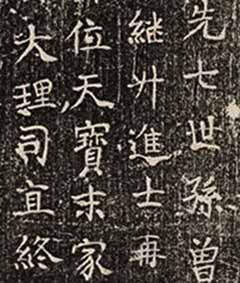 先七世孫曾
継廾進士再
位天寶末家
大理司直終